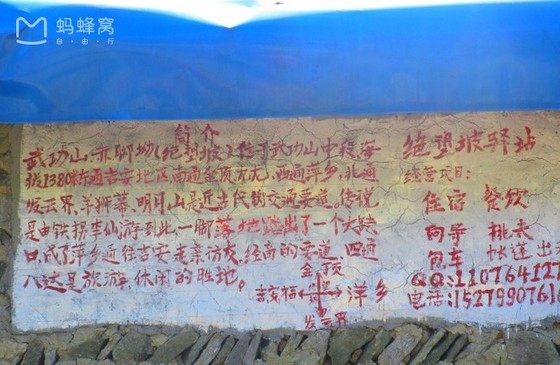 蚂蜂窝
自·由·行
简介
武功山,赤脚坳(绝望坡)位于武功山中段,海
拔1380,东通吉安地区,南通金顶,西通萍乡,北通
发云界,羊狮幕,明月山是近古代的交通要道,传说
是由铁拐李仙游到此,一脚落地踏出了一个大缺
口,成了萍乡通往吉安走亲访友,经商的要道,四通
八达是旅游,休闲的胜地。
金顶
萍乡
发云界
绝望坡驿站
经营项目:
住宿 餐饮
向导 挑夫
包车 帐篷出
QQ:110764127
电话:1527990761